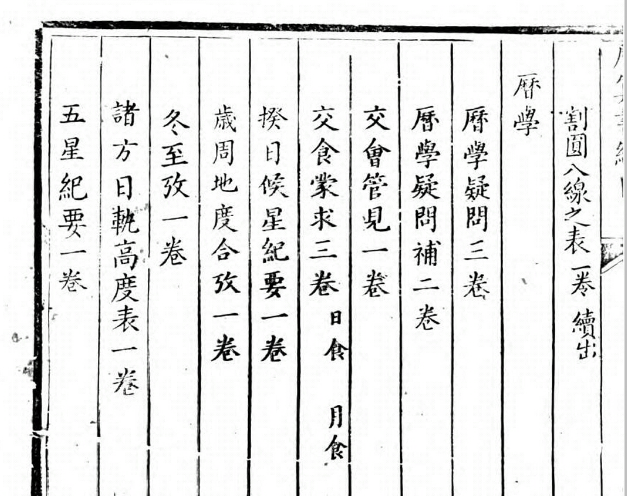 割圓八線之表一卷續出
曆學
曆學疑問三卷
曆學疑問補二卷
交會管見一卷
交食蒙求三卷 日食 月食
揆日候星紀要一卷
歲周地度合攷一卷
冬至攷一卷
諸方日軌高度表一卷
五星紀要一卷